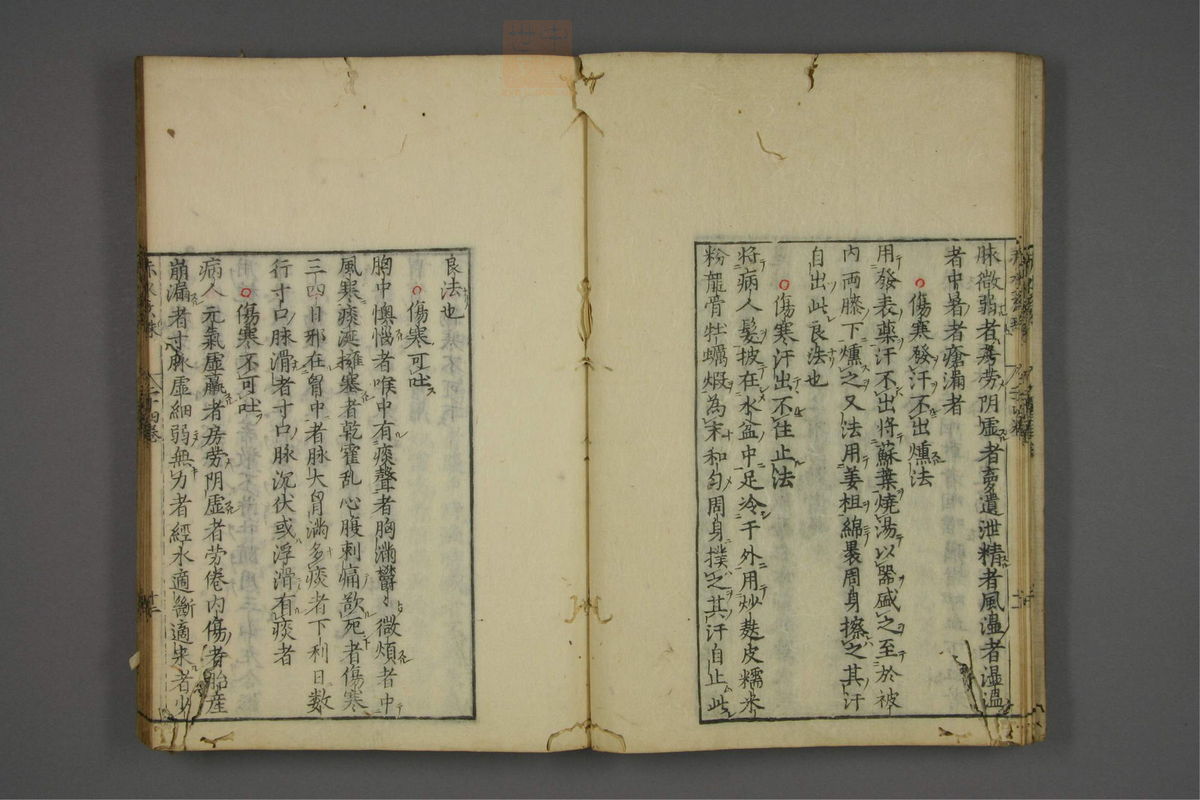 脉微弱者房勞阴虛者夢遺泄精者風溫者湿溫
者中暑者瘡漏者
傷寒發汗不出燻法
用發表藥汗不出將蘇葉燒湯以器盛之至於被
内両膝下燻之又法用姜柤綿褁周身擦之其汗
自出此良法也
傷寒汗出不住止法
将病人髪披在水盆中足冷于外用炒麸皮糯米
粉龍骨牡蠣煆為末和匀周身撲之其汗自止此
良法也
傷寒可吐
胸中懊憹者喉中有痰聲者胸滿欝々微煩者中
風寒痰涎擁塞者乾霍乱心腹刺痛欲死者傷寒
三四日邪在胷中者脉大胷滿多痰者下利日数
行寸口脉滑者寸口脉沉伏或浮滑有痰者
傷寒不可吐
病人元氣虛羸者房勞阴虛者劳倦内傷者胎産
崩漏者寸脉虛細弱無力者經水適斷適来者少